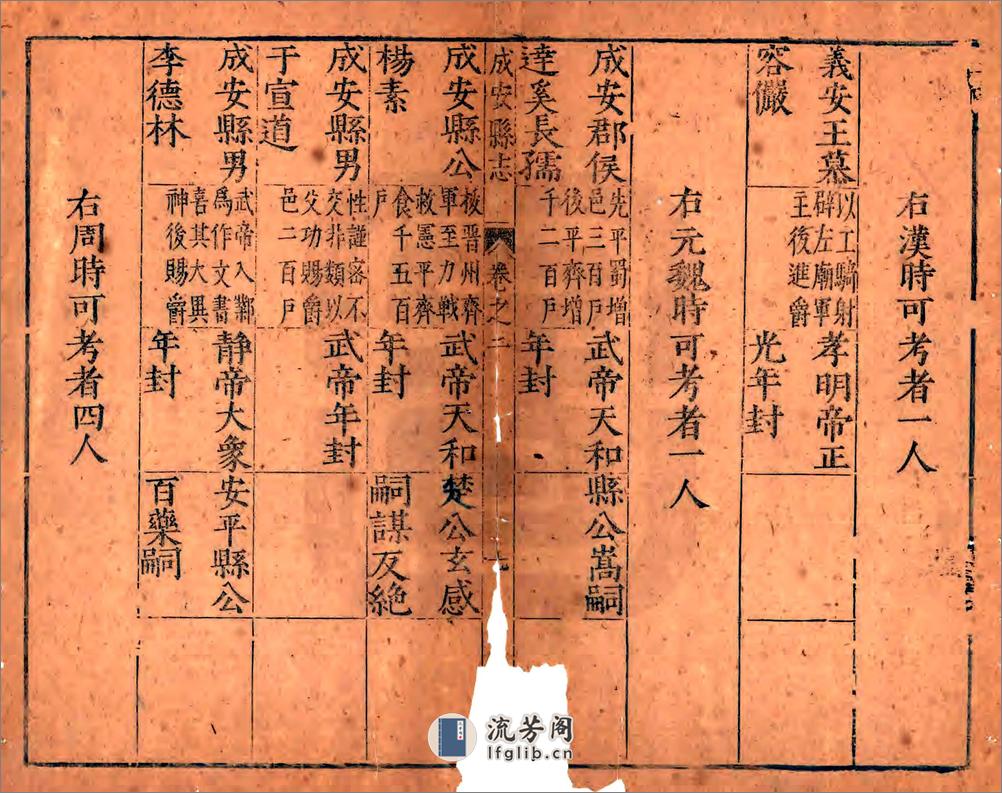 右漢時可考者一人
義安王慕
容儼
以工騎射
辟左廂軍
主後進爵
孝明帝正
光年封
右元魏時可考者一人
成安郡侯
達奚長孺
先平蜀增
邑三百戶
後平齊增
千二百戶
武帝天和
年封
縣公嵩嗣
成安縣志
卷之二
成安縣公
楊素
拔晉州齊
軍至力戰
救憲平齊
食千五百
戶
武帝天和
年封
楚公玄感
嗣謀反絶
成安縣男
于宣道
性謹密不
交非類以
父功賜爵
邑二百戶
武帝年封
成安縣男
李德林
武帝入鄴
為作文書
喜其大異
神後賜爵
靜帝大象
年封
安平縣公
百藥嗣
右周時可考者四人
流芳阁
lfglib.cn